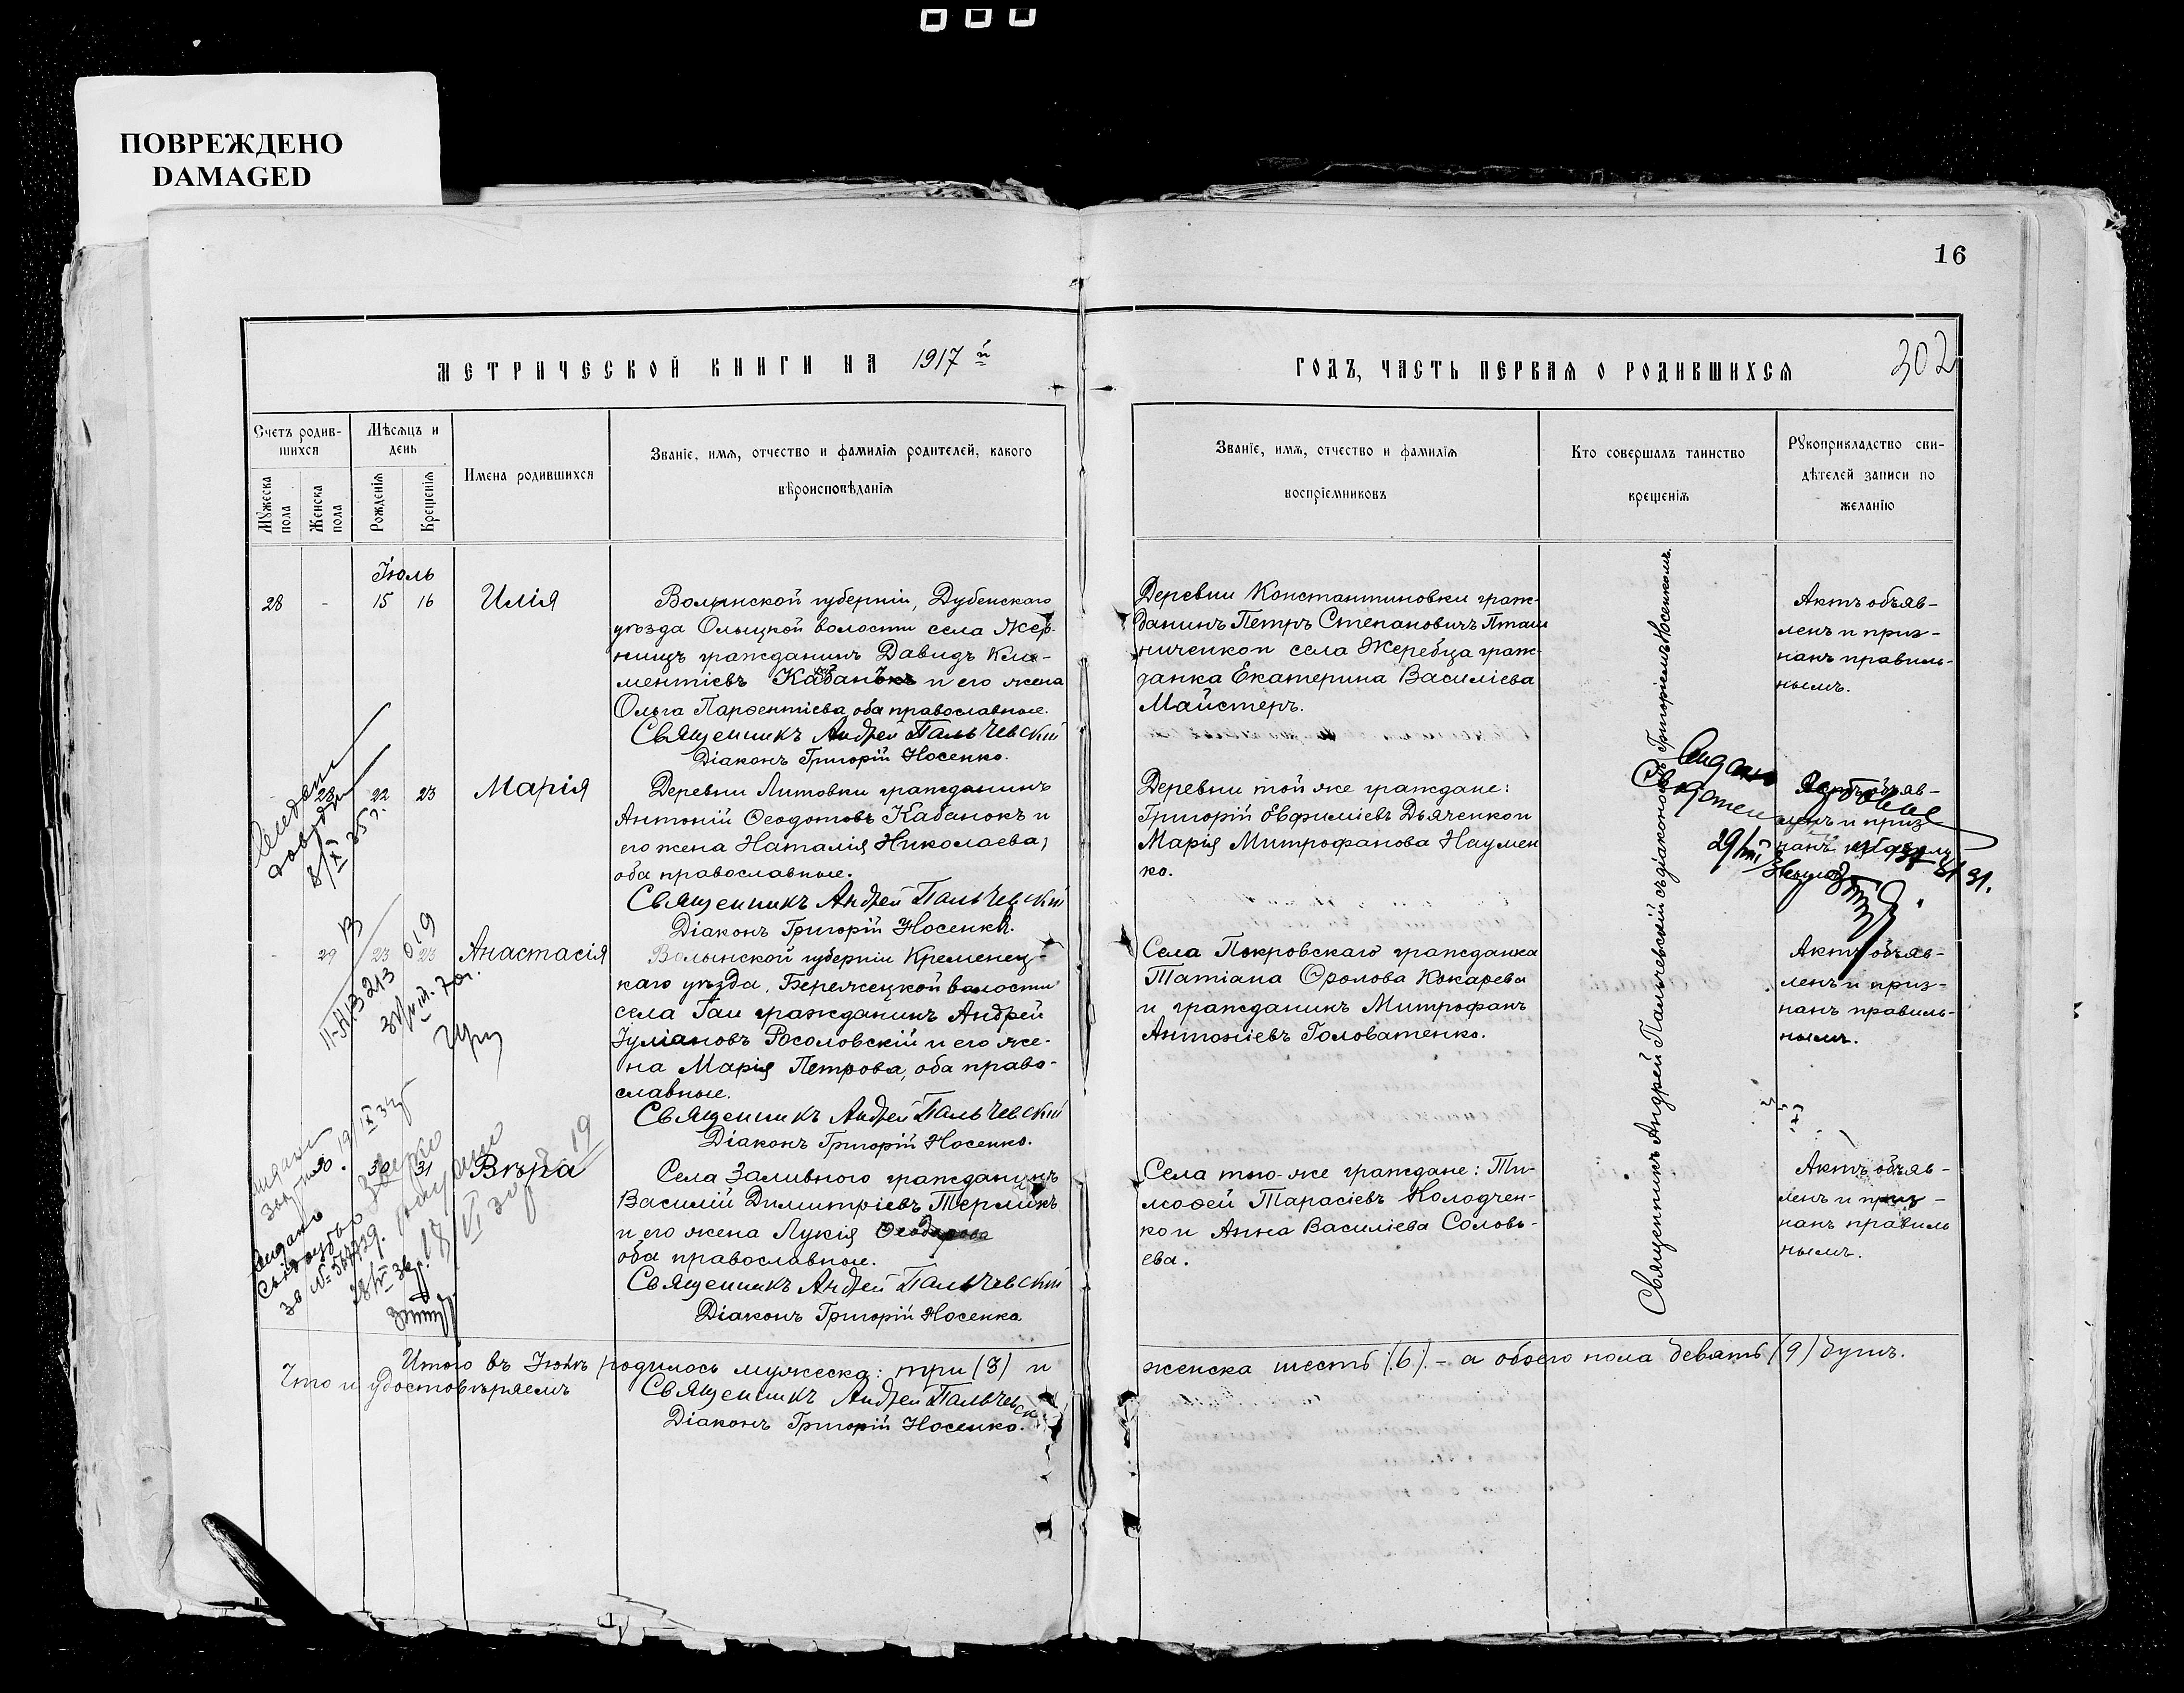 ПОВРЕЖДЕНО
DAMAGED
16
302
МЕТРИЧЕСКОЙ КНИГИ НА 1917 й
ГОДЪ, ЧАСТЬ ПЕРВАЯ О РОДИВШИХСЯ
Счетъ родив-
шихся
Мѣсяцъ и
день
Мужеска пола
Женска пола
Рожденія
Крещенія
Имена родившихся
Званіе, имя, отчество и фамилія родителей, какого
вѣроисповѣданія
Званіе, имя, отчество и фамилія
воспріемниковъ
Кто совершалъ таинство
крещенія
Рукоприкладство сви-
дѣтелей записи по
желанію
Іюль
28 - 15 16 Илія
Волынской губерніи, Дубенскаго
уѣзда Олыцкой волости села Жор-
нищъ гражданинъ Давидъ Кли-
ментіевъ и его жена
Ольга Парѳентіева, оба православные.
Священникъ Андрей Пальчевскій
Діаконъ Григорій Носенко.
Деревни Константиновки граж-
данинъ Петръ Степановичъ Пташ
ниченко и села Жеребца граж-
данка Екатерина Василіева
Майстеръ.
Актъ объяв-
ленъ и приз-
нанъ правиль-
нымъ.
- 28 22 23 Марія
Деревни Литовки гражданинъ
Антоній Ѳеодотовъ Кабанокъ и
его жена Наталія Николаева,
оба православные.
Священникъ Андрей Пальчевскій
Діаконъ Григорій Носенко.
Деревни той же граждане:
Григорій Евфиміевъ Дьяченко и
Марія Митрофанова Наумен
ко.
Актъ объяв-
ленъ и приз-
нанъ
- 29 23 23 Анастасія
Волынской губерніи Кременец-
каго уѣзда, Бережецкой волости
села Гаи гражданинъ Андрей
Іуліановъ Росоловскій и его же-
на Марія Петрова, оба право-
славные.
Священникъ Андрей Пальчевскій
Діаконъ Григорій Носенко.
Села Покровскаго гражданка
Татіана Фролова Кокарева
и гражданинъ Митрофанъ
Антоніевъ Головатенко.
Актъ объяв-
ленъ и приз-
нанъ правиль-
нымъ.
30 30 31 Вѣра
Села Заливного гражданинъ
Василій Димитріевъ Терликъ
и его жена Лукія Ѳеодорова
оба православные.
Священникъ Андрей Пальчевскій
Діаконъ Григорій Носенко
Села того же граждане: Ти-
моѳей Тарасіевъ Колодчен-
ко и Анна Василіева Соловь-
ева.
Актъ объяв-
ленъ и приз-
нанъ правиль
нымъ.
Священникъ Андрей Пальчевскій съ діакономъ Григоріемъ Носенкомъ.
Итого въ Іюлѣ родилось мужеска: три (3) и женска шесть (6) - а обоего пола девять (9) душъ.
Что и удостовѣряемъ
Священникъ Андрей Пальчевск
Діаконъ Григорій Носенко.